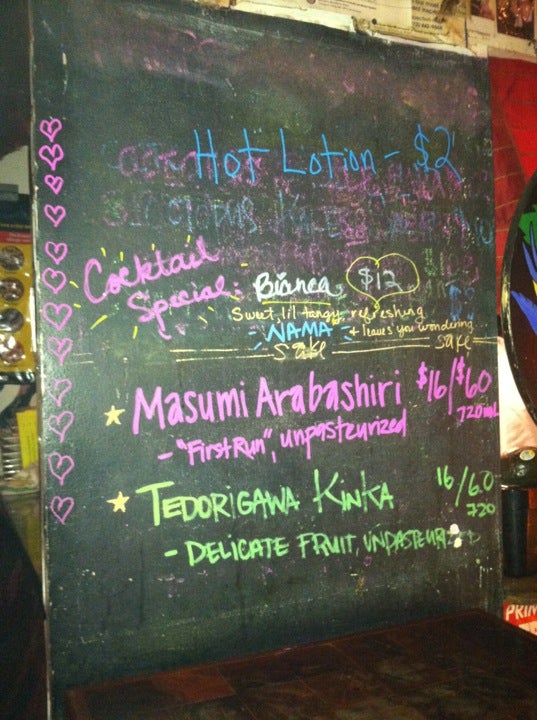 Hot Lotion - $2
Cocktail
Special:
Bianca $12
Sweet, lil tangy, refreshing
+ leaves you wondering
NAMA
sake
sake
Masumi Arabashiri $16/$60
720mL
- "First Run", unpasteurized
TEDORIGAWA KINKA 16/60
720
- DELICATE FRUIT, UNPASTEURIZED
PRIM